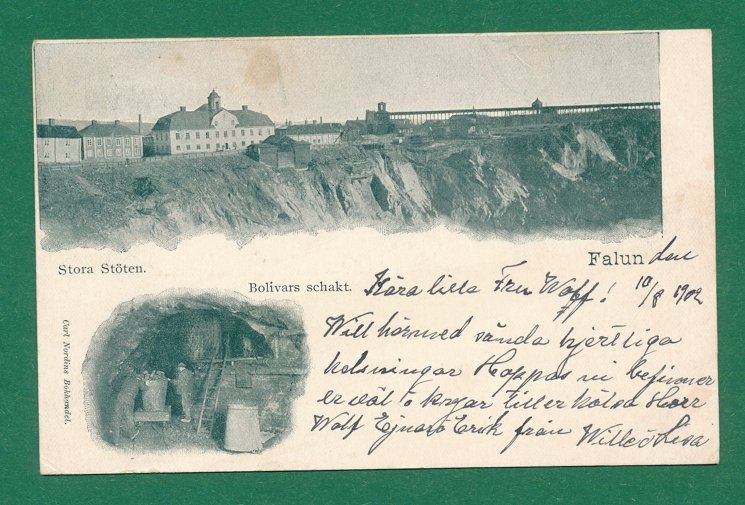 Stora Stöten.
Falun den
10/8 1902
Bolivars schakt.
Kära lilla Fru Wolff!
Will härmed sända hjertliga
helsningar Hoppas ni befinner
er wäl o kryar till er hälsa Herr
Wolf Ejnar o Erik från Wille o Lisa
Carl Nordins Bokhandel.